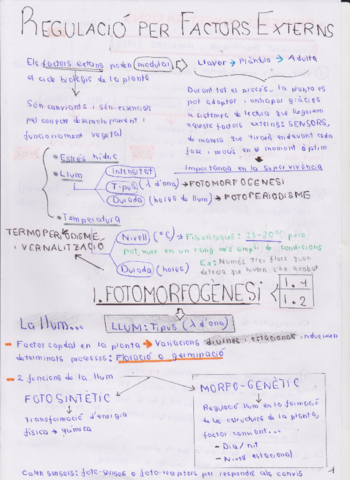 REGULACIÓ PER FACTORS EXTERNS
Els factors externs poden modular
el cicle biològic de la planta
Llavor → Plàntula → Adulta
Són canviants i són essencials
pel correcte desenvolupament i
funcionament vegetal
Durant tot el procés, la planta es
pot adaptar i enhapar gràcies
a sistemes de lectura que llegeixen
aquests factors externs: SENSORS,
de manera que tirarà endavant cada
fase i procés en el moment òptim
Importància en la supervivència
Estrès hídric
Llum
Intensitat
Tipus (λ d'ona) → FOTOMORFOGÈNESI
Durada (hores de llum) → FOTOPERIODISME
Temperatura
TERMOPERIODISME
i VERNALITZACIÓ
Nivell (ºC) → Fisiològiques: 25-30ºC però
pot viure en un rang més ampli de condicions
Ex: Només treu flors quan
detecta que hivern s'ha acabat
Durada (hores)
1. FOTOMORFOGÈNESI
1.1
1.2
La llum...
LLUM: Tipus (λ d'ona)
- Factor cabdal en la planta → Variacions diürnes i estacionals indueixen
determinats processos: Floració o germinació
- 2 funcions de la llum
FOTOSINTÈTIC
Transformació d'energia
física → química
MORFO-GENÈTIC
Regulació llum en la formació
de les estructures de la planta,
factor canviant...
- Dia/nit
- Nivell estacional
Calen sensors: foto-sensors o foto-receptors per respondre als canvis
1